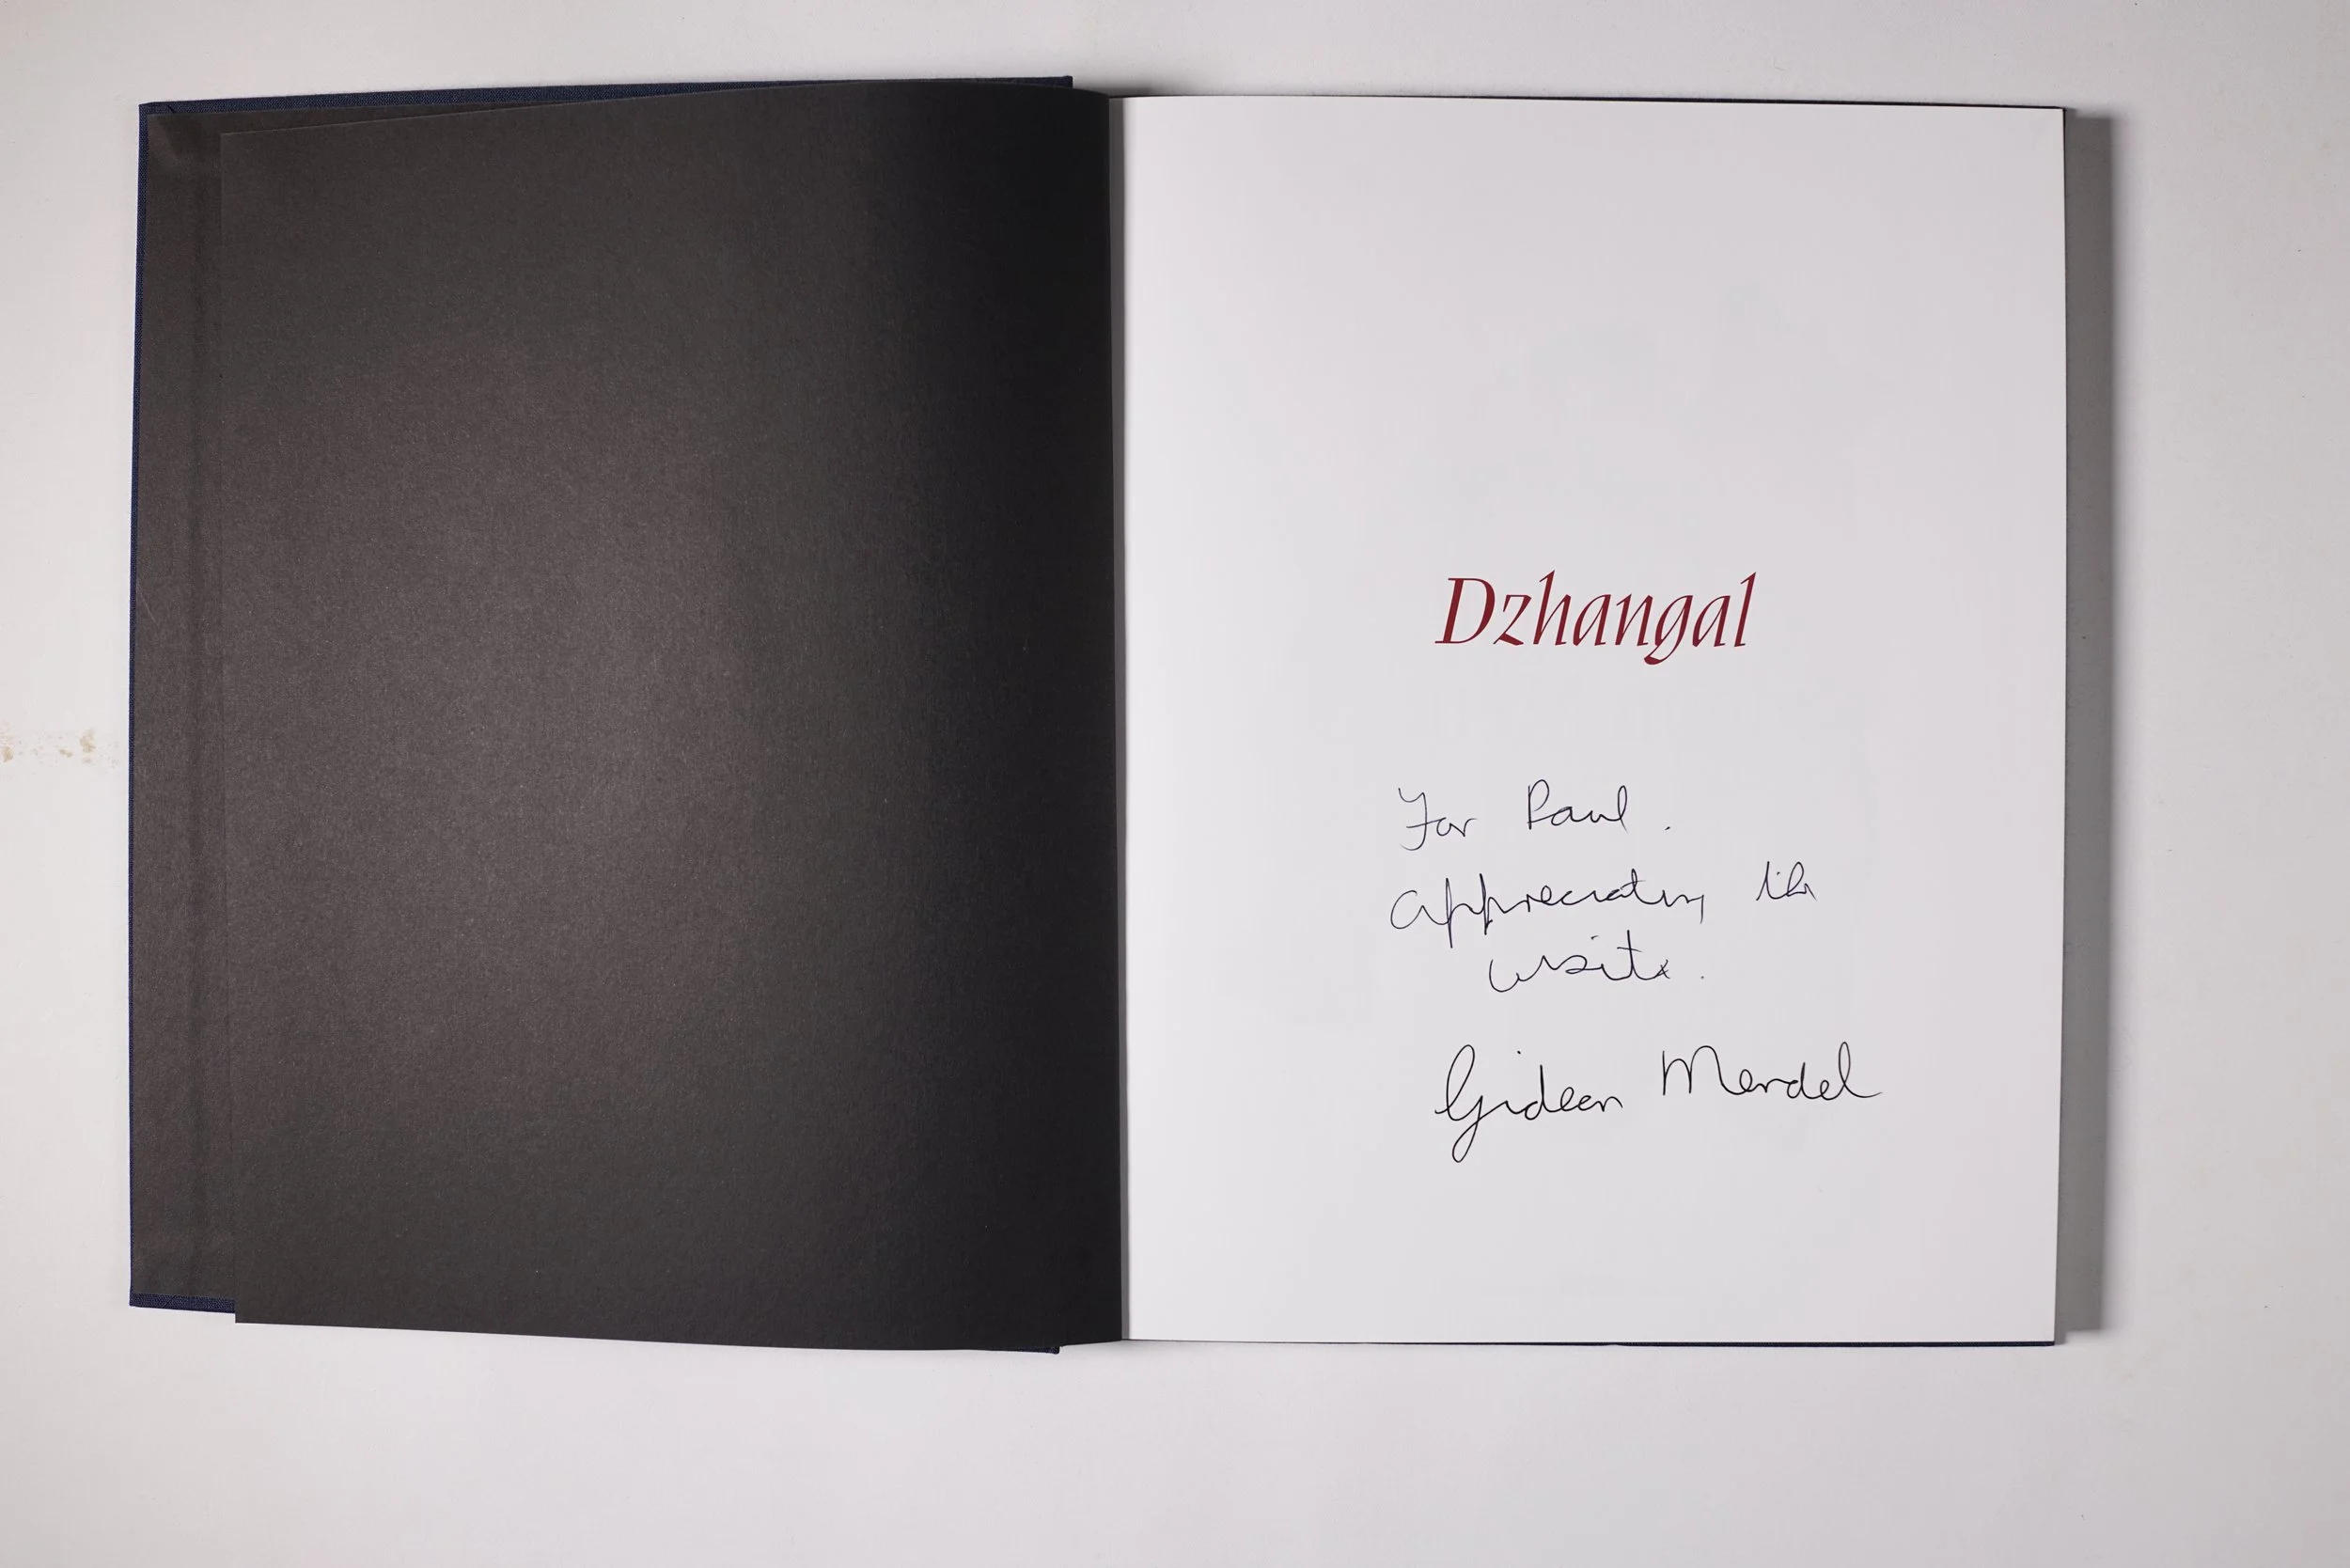 Dzhangal
For Paul.
appreciating the
visit.
Gideon Mendel